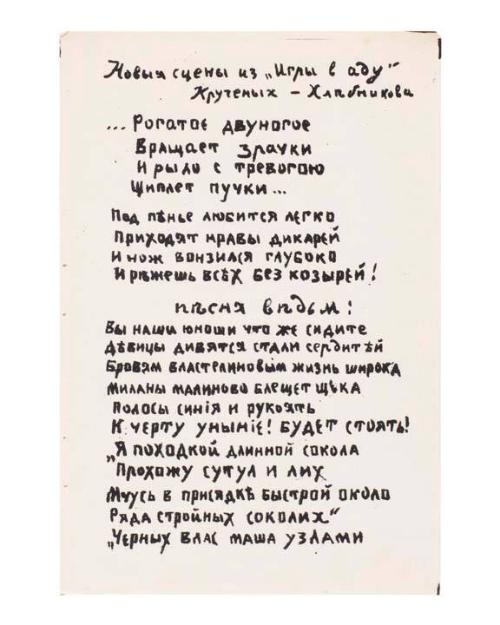 Новыя сцены из „Игры в аду"
Крученых – Хлѣбникова
... Рогатое двуногое
Вращает зрачки
И рыло с тревогою
Щиплет пучки...
Под пѣнье любится легко
Приходят нравы дикарей
И нож вонзился глубоко
И рѣжешь всѣх без козырей!
пѣсня вѣдьм:
Вы наши юноши что же сидите
Дѣвицы дивятся стали сердитѣй
Бровям властелиновым жизнь широка
Миланы малиново блещет щѣка
Полосы синія и рукоять
К черту уныніе! будет стоять!
„Я походкой длинной сокола
Прохожу сутул и лих
Мчусь в присядкѣ быстрой около
Ряда стройных соколих"
„Черных влас маша узлами